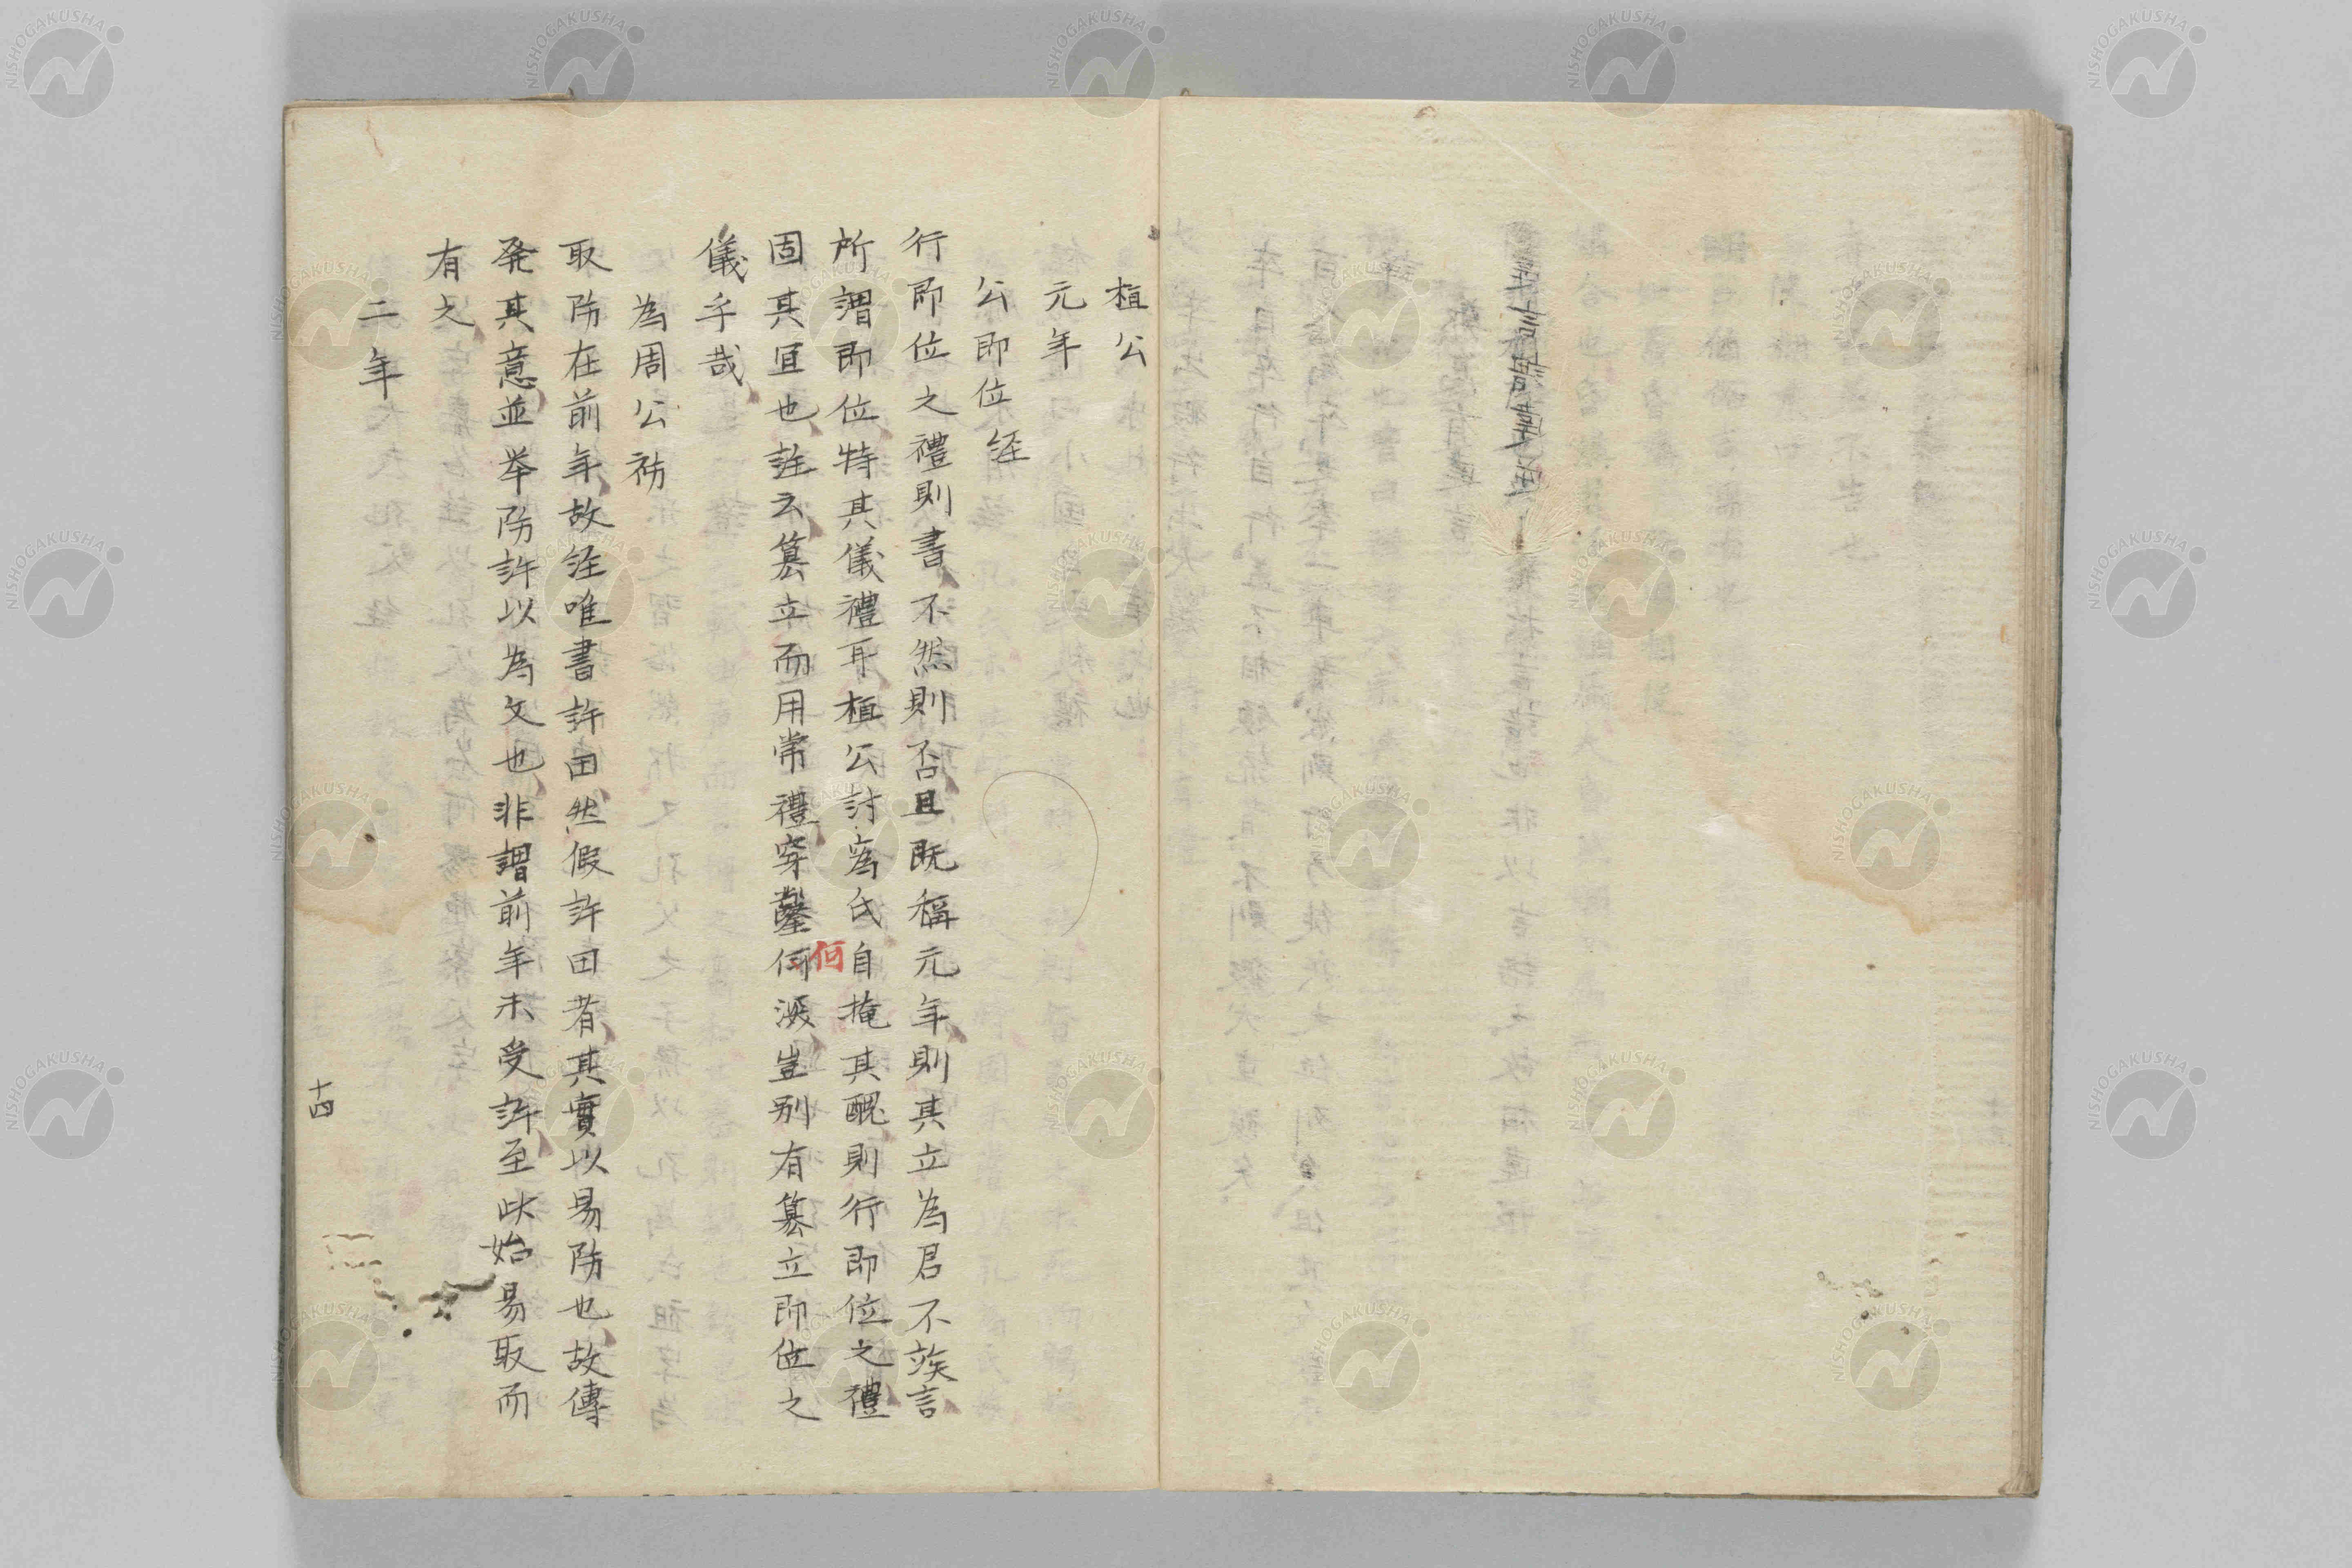 桓公
元年
公即位 経
行即位之禮則書不然則否且既稱元年則其立為君不竢言
所謂即位特其儀禮耳桓公討寪氏自掩其醜則行即位之禮
固其宜也註云簒立而用常禮穿鑿何 何 豈別有簒立即位之
儀乎哉
為周公祊
取防在前年故経唯書許田然假許田者其實以易防也故傳
発其意並举防許以為文也非謂前年未受許至此始易取而
有之
二年
十四
NISHOGAKUSHA